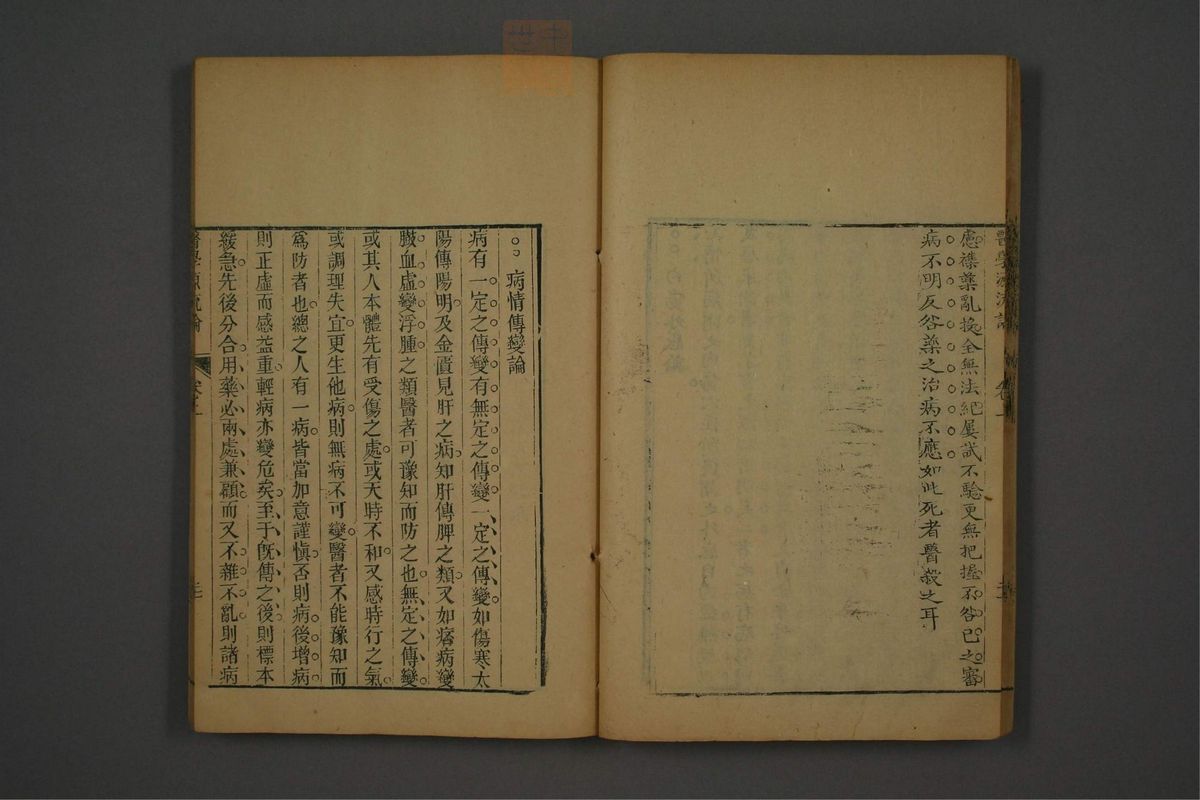 醫學源流論 卷上
慮襍藥亂投全無法紀屢試不驗更無把握不咎巳之審
病不明反咎藥之治病不應如此死者醫殺之耳
病情傳變論
病有一定之傳變有無定之傳變一定之傳變如傷寒太
陽傳陽明及金匱見肝之病知肝傳脾之類又如痞病變
臌血虛變浮腫之類醫者可豫知而防之也無定之傳變
或其人本體先有受傷之處或天時不和又感時行之氣
或調理失宜更生他病則無病不可變醫者不能豫知而
爲防者也總之人有一病皆當加意謹愼否則病後增病
則正虛而感益重輕病亦變危矣至于旣傳之後則標本
緩急先後分合用藥必兩處兼顧而又不雜不亂則諸病
醫學源流論 卷上